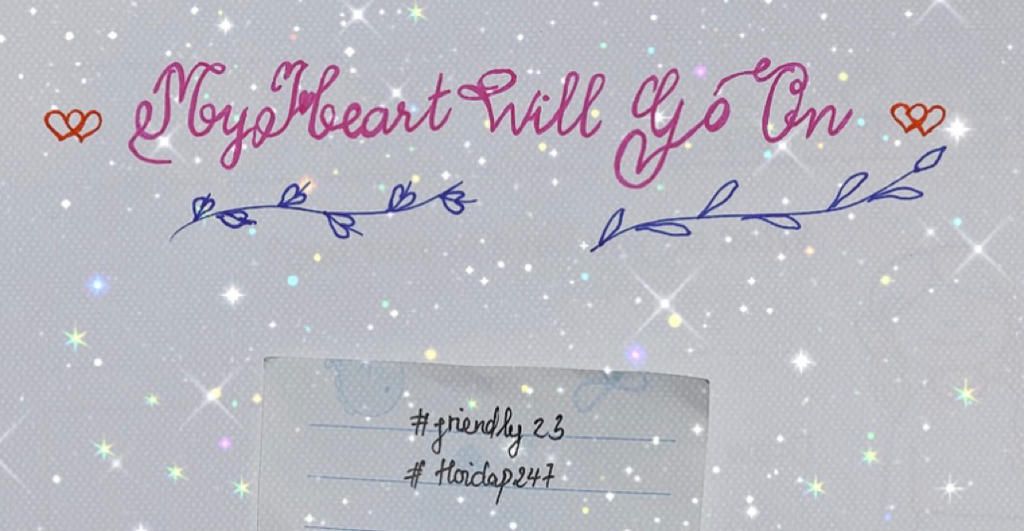 My Heart Will Go On
#friendly 23
# Hoidap247